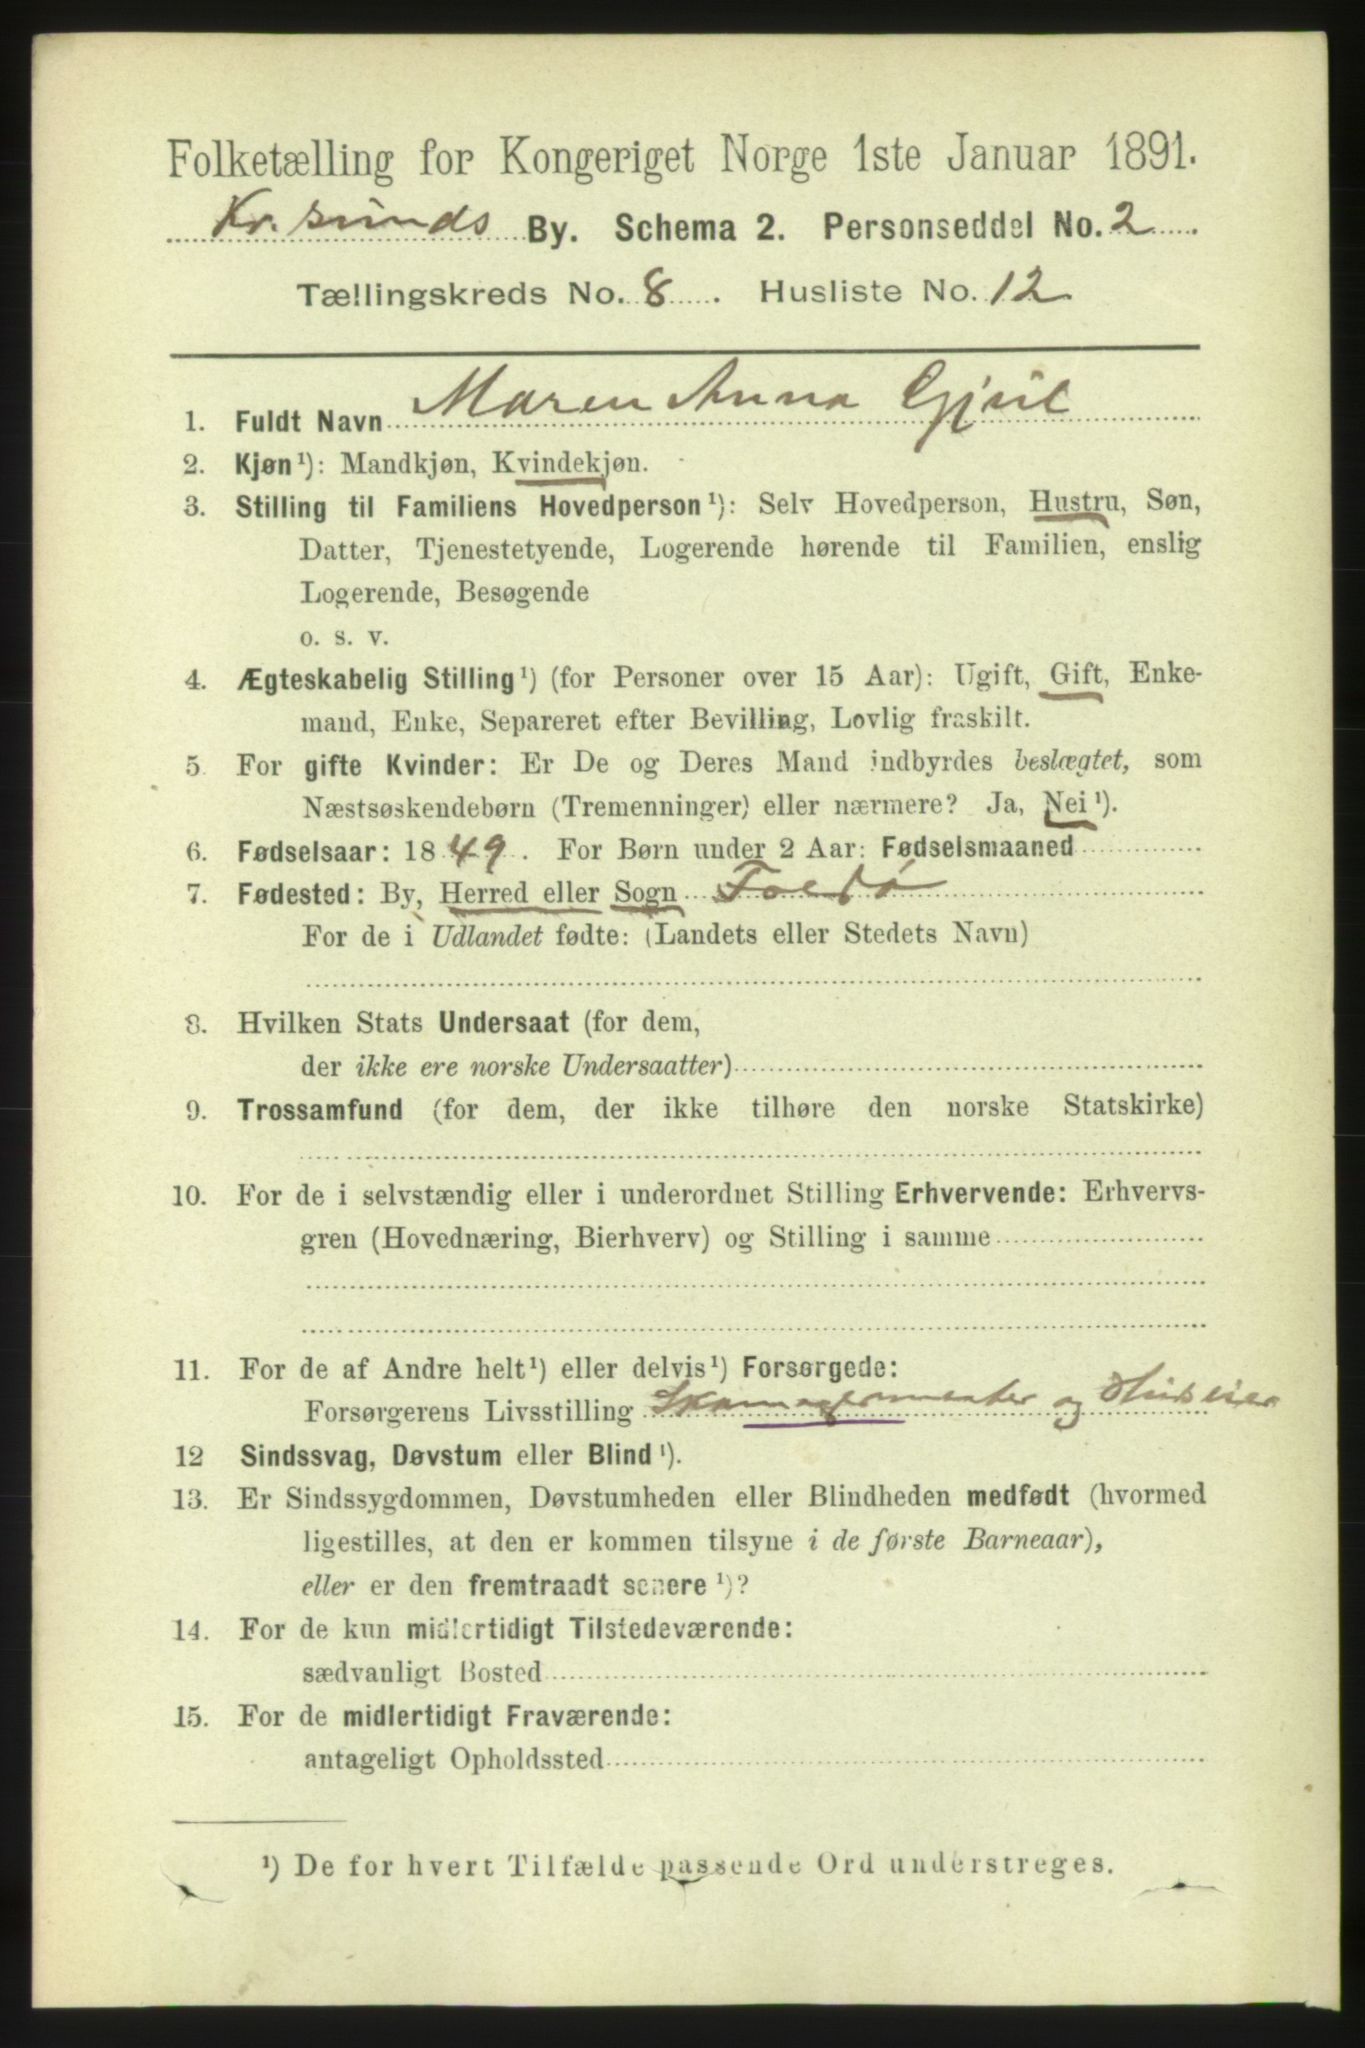 Folketælling for Kongeriget Norge 1ste Januar 1891.
Kr.sunds By. Schema 2. Personseddel No. 2
Tællingskreds No. 8. Husliste No. 12
1. Fuldt Navn Maren Anna
2. Kjøn¹): Mandkjøn, Kvindekjøn.
3. Stilling til Familiens Hovedperson¹): Selv Hovedperson, Hustru, Søn,
Datter, Tjenestetyende, Logerende hørende til Familien, enslig
Logerende, Besøgende
o. s. v.
4. Ægteskabelig Stilling¹) (for Personer over 15 Aar): Ugift, Gift, Enke-
mand, Enke, Separeret efter Bevilling, Lovlig fraskilt.
5. For gifte Kvinder: Er De og Deres Mand indbyrdes beslægtet, som
Næstsøskendebørn (Tremenninger) eller nærmere? Ja, Nei¹).
6. Fødselsaar: 1849. For Børn under 2 Aar: Fødselsmaaned
7. Fødested: By, Herred eller Sogn
For de i Udlandet fødte: (Landets eller Stedets Navn)
8. Hvilken Stats Undersaat (for dem,
der ikke ere norske Undersaatter)
9. Trossamfund (for dem, der ikke tilhøre den norske Statskirke)
10. For de i selvstændig eller i underordnet Stilling Erhvervende: Erhvervs-
gren (Hovednæring, Bierhverv) og Stilling i samme
11. For de af Andre helt¹) eller delvis¹) Forsørgede:
Forsørgerens Livsstilling Skomagermester og Huseier
12 Sindssvag, Døvstum eller Blind¹).
13. Er Sindssygdommen, Døvstumheden eller Blindheden medfødt (hvormed
ligestilles, at den er kommen tilsyne i de første Barneaar),
eller er den fremtraadt senere¹)?
14. For de kun midlertidigt Tilstedeværende:
sædvanligt Bosted
15. For de midlertidigt Fraværende:
antageligt Opholdssted
¹) De for hvert Tilfælde passende Ord understreges.